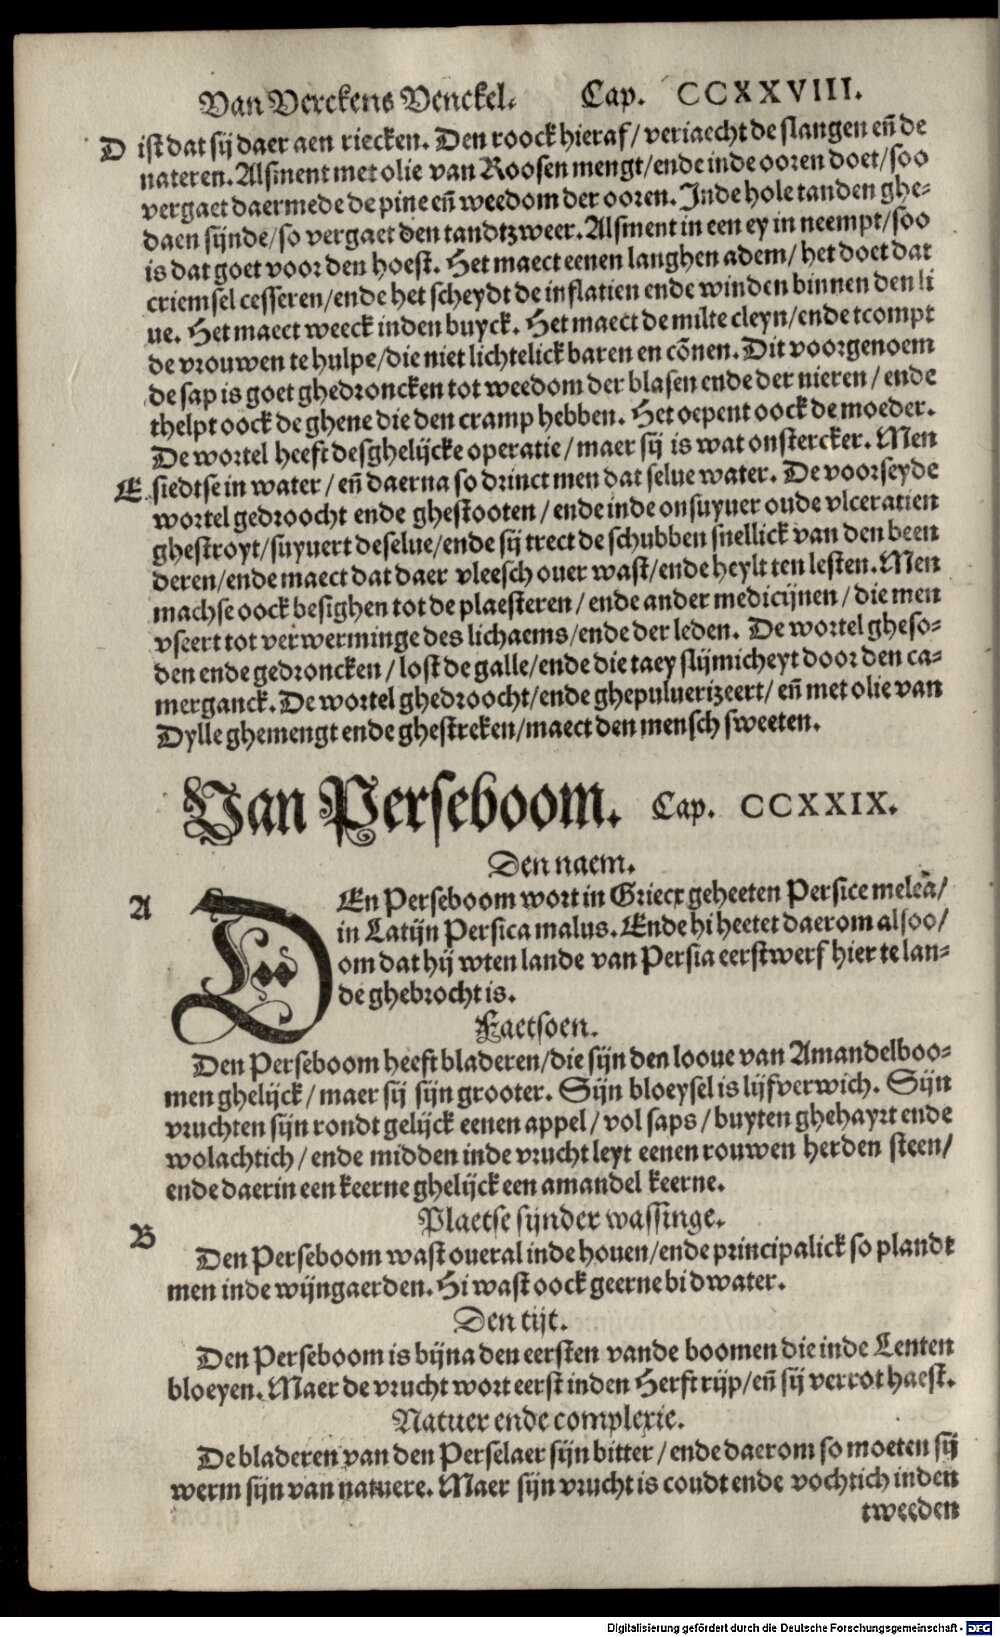 Van Verckens Venckel. Cap. CCXXVIII.
D ist dat sij daer aen riecken. Den roock hieraf/ veriaecht de slangen eñ de
nateren. Alsment met olie van Roosen mengt/ ende inde ooren doet/ soo
vergaet daermede de pine eñ weedom der ooren. Inde hole tanden ghe-
daen sijnde/ so vergaet den tandtzweer. Alsment in een ey in neempt/ soo
is dat goet voor den hoest. Het maect eenen langhen adem/ het doet dat
criemsel cesseren/ ende het scheydt de inflatien ende winden binnen den li
ue. Het maect weeck inden buyck. Het maect de milte cleyn/ ende tcompt
de vrouwen te hulpe/ die niet lichtelick baren en cõnen. Dit voorgenoem
de sap is goet ghedroncken tot weedom der blasen ende der nieren/ ende
thelpt oock de ghene die den cramp hebben. Het oepent oock de moeder.
De wortel heeft desghelijcke operatie/ maer sij is wat onstercker. Men
E siedtse in water/ eñ daerna so drinct men dat selue water. De voorseyde
wortel gedroocht ende ghestooten/ ende inde onsuyuer oude vlceratien
ghestroyt/ suyuert deselue/ ende sij trect de schubben snellick van den been
deren/ ende maect dat daer vleesch ouer wast/ ende heylt ten lesten. Men
machse oock besighen tot de plaesteren/ ende ander medicijnen/ die men
vseert tot verwerminge des lichaems/ ende der leden. De wortel gheso-
den ende gedroncken/ lost de galle/ ende die taey slijmicheyt door den ca-
merganck. De wortel ghedroocht/ ende ghepuluerizeert/ eñ met olie van
Dylle ghemengt ende ghestreken/ maect den mensch sweeten.
Van Perseboom. Cap. CCXXIX.
Den naem.
A DEn Perseboom wort in Griecx geheeten Persice melea/
in Latijn Persica malus. Ende hi heetet daerom alsoo/
om dat hij wten lande van Persia eerstwerf hier te lan-
de ghebrocht is.
Faetsoen.
Den Perseboom heeft bladeren/ die sijn den looue van Amandelboo-
men ghelijck/ maer sij sijn grooter. Sijn bloeysel is lijfverwich. Sijn
vruchten sijn rondt gelijck eenen appel/ vol saps/ buyten ghehayrt ende
wolachtich/ ende midden inde vrucht leyt eenen rouwen herden steen/
ende daerin een keerne ghelijck een amandel keerne.
Plaetse sijnder wassinge.
B Den Perseboom wast oueral inde houen/ ende principalick so plandt
men inde wijngaerden. Hi wast oock geerne bi dwater.
Den tijt.
Den Perseboom is bijna den eersten vande boomen die inde Lenten
bloeyen. Maer de vrucht wort eerst inden Herfst rijp/ eñ sij verrot haest.
Natuer ende complexie.
De bladeren van den Perselaer sijn bitter/ ende daerom so moeten sij
werm sijn van natuere. Maer sijn vrucht is coudt ende vochtich inden
tweeden
Digitalisierung gefördert durch die Deutsche Forschungsgemeinschaft - DFG